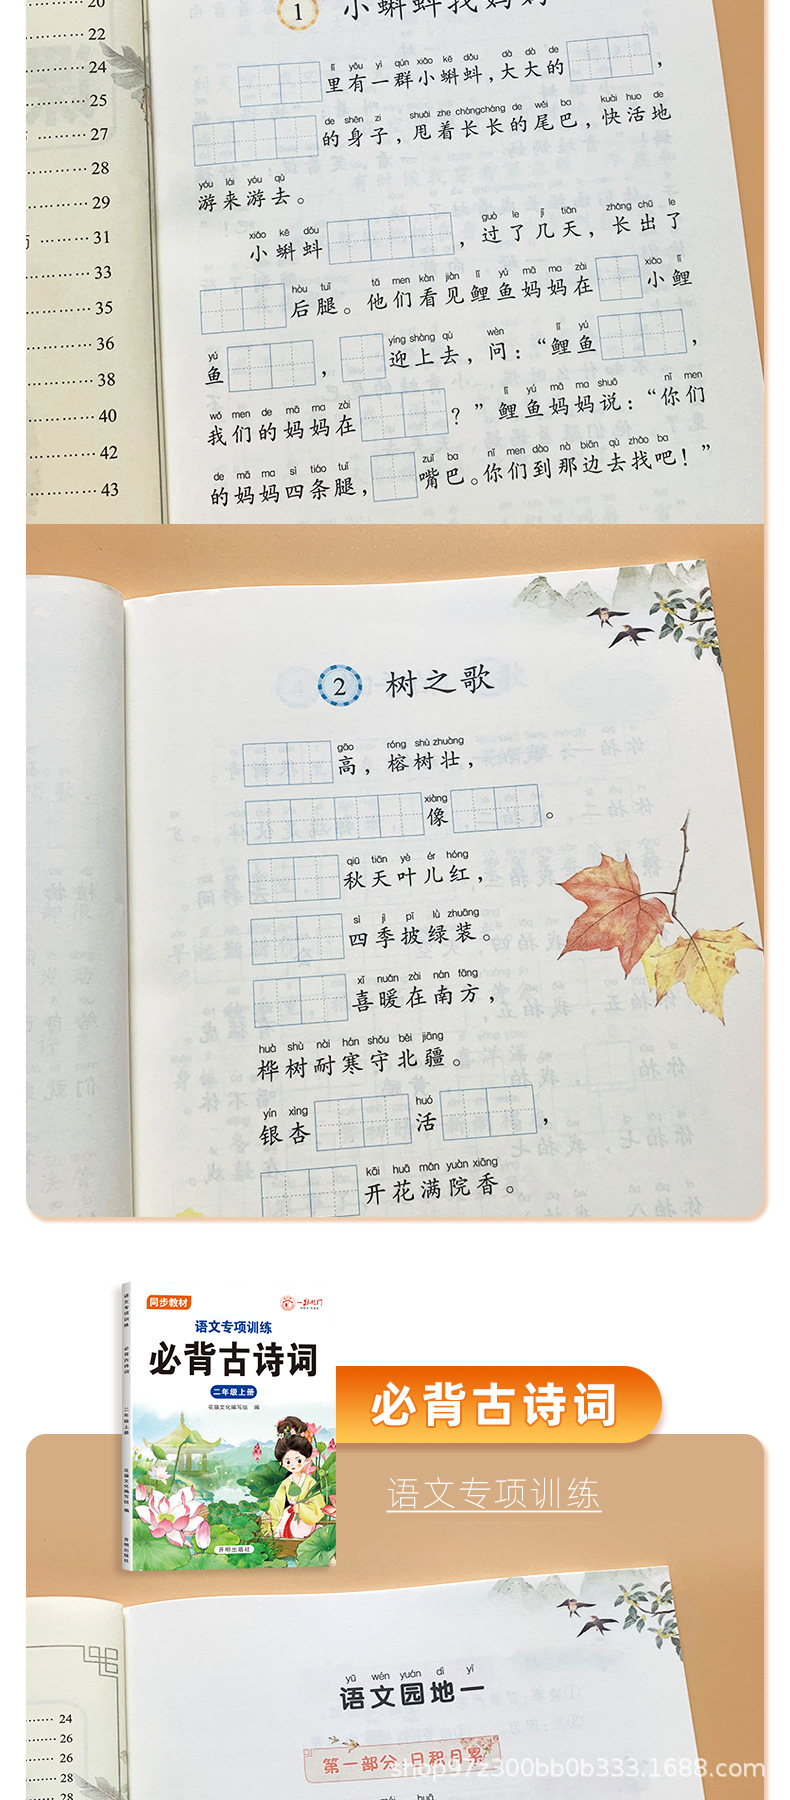 20
22
24
25
27
28
29
31
33
35
36
38
40
42
43
1 小蝌蚪找妈妈
lǐ yǒu yì qún xiǎo kē dǒu dà dà de
里有一群小蝌蚪，大大的，
de shēn zi shuǎi zhe chángcháng de wěi ba kuài huo de
的身子，甩着长长的尾巴，快活地
yóu lái yóu qù
游来游去。
xiǎo kē dǒu guò le jǐ tiān zhǎng chū le
小蝌蚪，过了几天，长出了
hòu tuǐ tā men kàn jiàn lǐ yú mā ma zài xiǎo lǐ
后腿。他们看见鲤鱼妈妈在小鲤
yú yíng shàng qù wèn lǐ yú
鱼，迎上去，问：“鲤鱼，
wǒ men de mā ma zài lǐ yú mā ma shuō nǐ men
我们的妈妈在？”鲤鱼妈妈说：“你们
de mā ma sì tiáo tuǐ zuǐ ba nǐ men dào nà biān qù zhǎo ba
的妈妈四条腿，嘴巴。你们到那边去找吧！”
2 树之歌
gāo róng shù zhuàng
高，榕树壮，
xiàng
像。
qiū tiān yè ér hóng
秋天叶儿红，
sì jì pī lǜ zhuāng
四季披绿装。
xǐ nuǎn zài nán fāng
喜暖在南方，
huà shù nài hán shǒu běi jiāng
桦树耐寒守北疆。
yín xìng huó
银杏活，
kāi huā mǎn yuàn xiāng
开花满院香。
同步教材
语文专项训练
必背古诗词
二年级上册
花猫文化编写组 编
开明出版社
语文专项训练
必背古诗词
二年级上册
花猫文化编写组 编
开明出版社
必背古诗词
语文专项训练
24
26
26
28
28
yǔ wén yuán dì yī
语文园地一
第一部分 日积月累
shop97z300bb0b333.1688.com